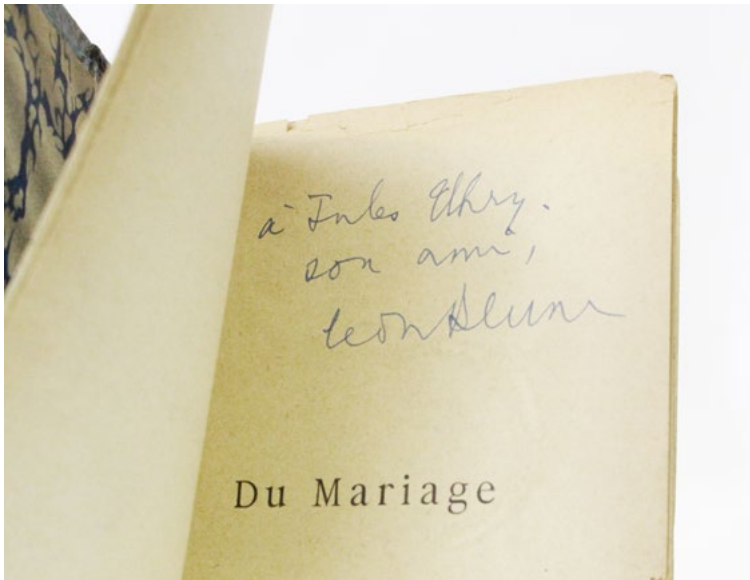 à Jules Elhry.
son ami,
Léon Blum
Du Mariage